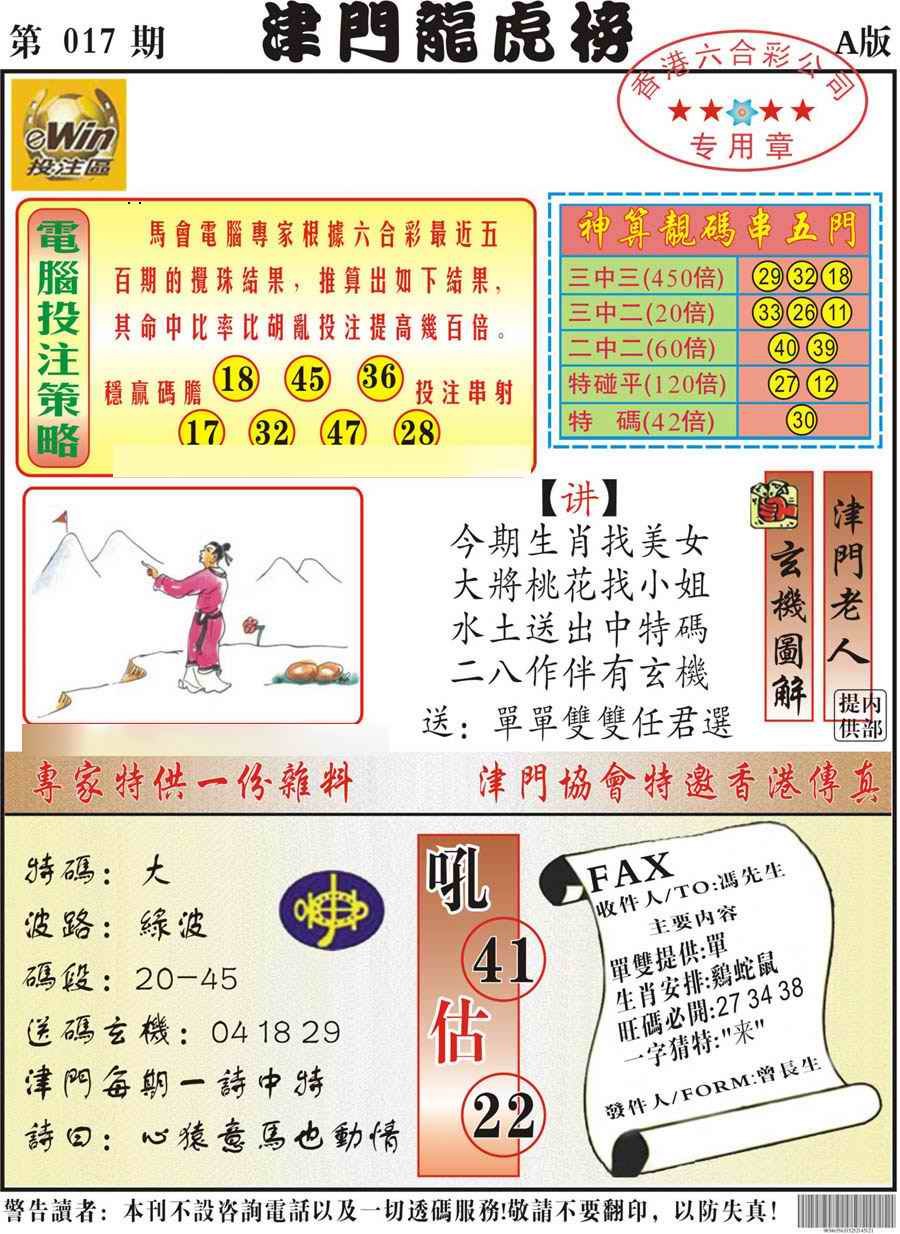 第 017 期
津門龍虎榜
A版
香港六合彩公司
专用章
eWin
投注區
電腦投注策略
馬會電腦專家根據六合彩最近五
百期的攪珠結果，推算出如下結果，
其命中比率比胡亂投注提高幾百倍。
穩贏碼膽 18 45 36 投注串射
17 32 47 28
神算靚碼串五門
三中三(450倍) 29 32 18
三中二(20倍) 33 26 11
二中二(60倍) 40 39
特碰平(120倍) 27 12
特 碼(42倍) 30
【讲】
今期生肖找美女
大將桃花找小姐
水土送出中特碼
二八作伴有玄機
送：單單雙雙任君選
玄機圖解
津門老人
提内
供部
專家特供一份雜料
津門協會特邀香港傳真
特碼：大
波路：綠波
碼段：20-45
送碼玄機：04 18 29
津門每期一詩中特
詩曰：心猿意馬也動情
吼
41
估
22
FAX
收件人/TO:馮先生
主要内容
單雙提供:單
生肖安排:鷄蛇鼠
旺碼必開:27 34 38
一字猜特:"来"
發件人/FORM:曾長生
警告讀者：本刊不設咨詢電話以及一切透碼服務!敬請不要翻印，以防失真!